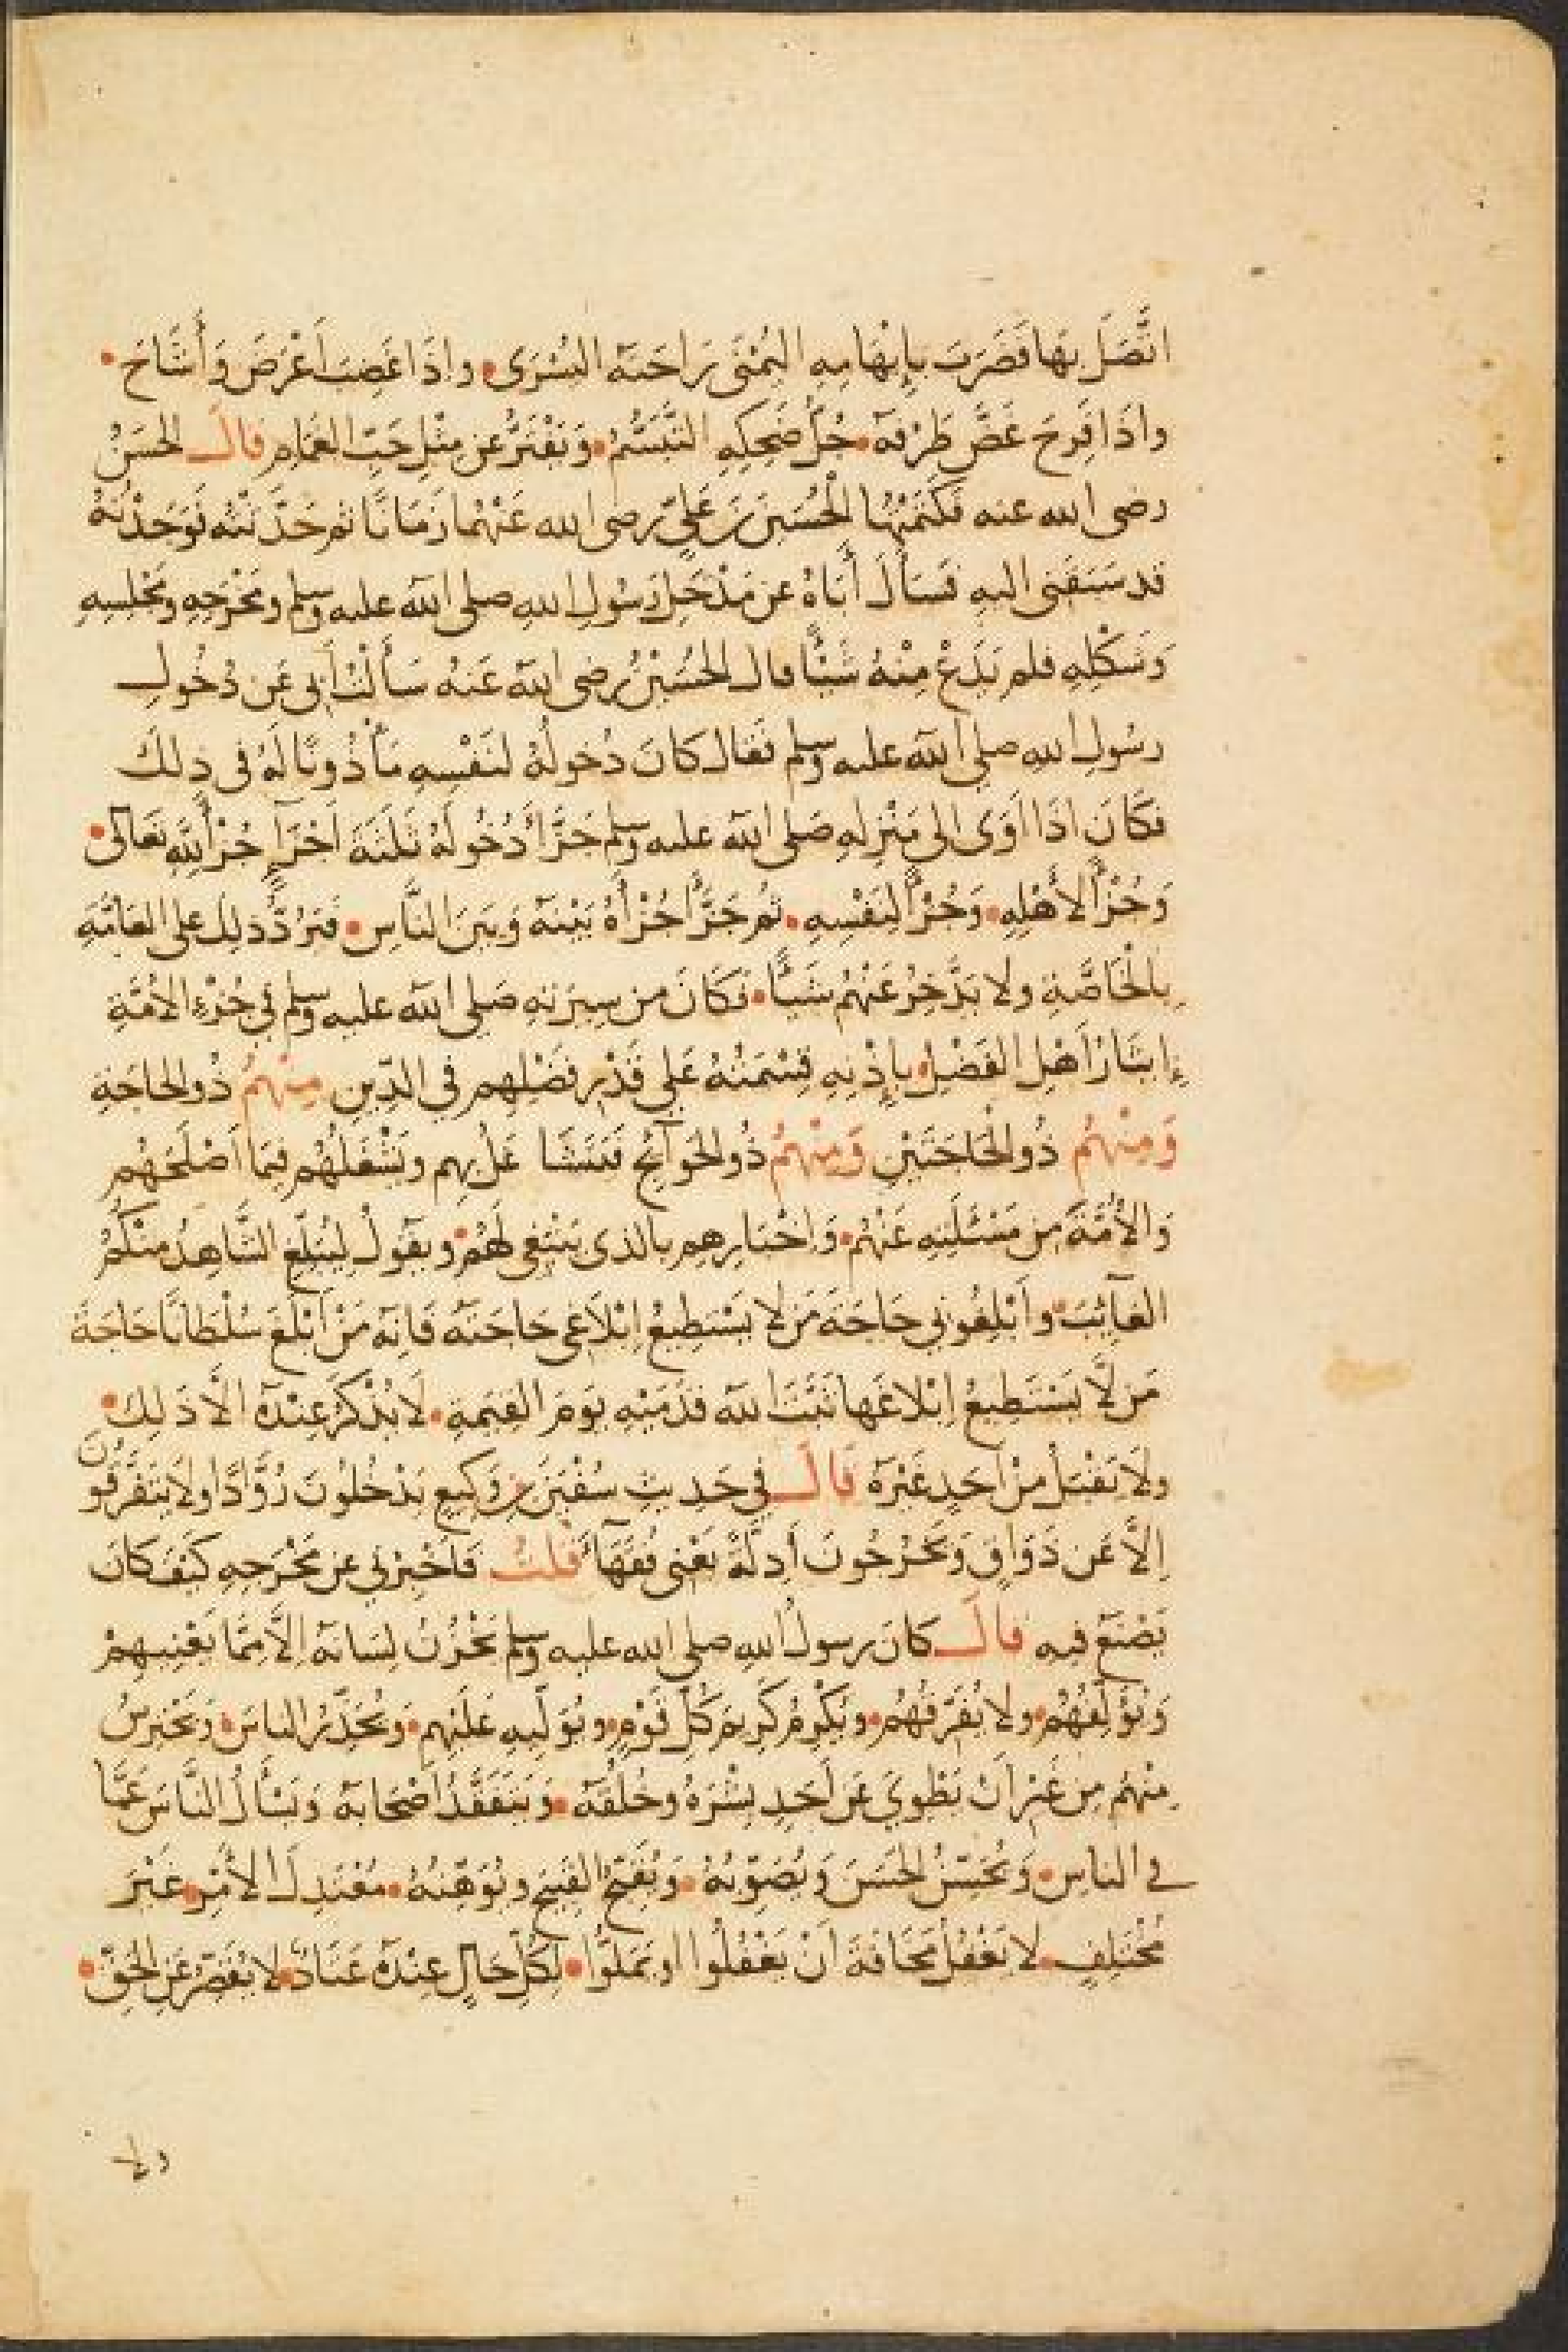 اتَّصَلَ بهَا فَضَرَبَ بِإبْهَامِهِ الْيُمْنَى رَاحَتَهُ الْيُسْرَى • وإذَا غَضِبَ أَعْرَضَ وَأَشَاحَ •
وإذَا فَرِحَ غَضَّ طَرْفَهُ • جُلُّ ضَحِكِهِ التَّبَسُّمُ • وَيَفْتَرُّ عن مِثْلِ حَبِّ الغَمَامِ قالَ الحَسَنُ
رضى الله عنه فَكَتَمْتُهَا الْحُسَيْنَ بْنَ عَلِيٍّ رضى الله عَنْهُمَا زَمَانًا ثم حَدَّثْتُه فَوَجَدْتُهُ
قد سَبَقَنى اليهِ فَسَأَلَ أَبَاهُ عن مَدْخَلِ رَسُولِ اللهِ صلى الله عليه وسلم ومَخْرَجِهِ ومَجْلِسِهِ
وَشَكْلِهِ فلم يَدَعْ مِنْهُ شَيْئًا قال الحُسَيْنُ رضى الله عَنهُ سَأَلْتُ أَبِى عَن دُخُولِ
رسُولِ اللهِ صلى الله عليه وسلم فَقَال كَانَ دُخولُهُ لنَفْسِهِ مَأْذُونًا لَهُ فى ذلِكَ
فكَانَ اذَا اَوَى الى مَنْزِلِهِ صَلى الله عليه وسلم جَزَّأَ دُخُولَهُ ثَلثَةَ اَجْزَآءٍ جُزْأً لِلّهِ تَعَالَى •
وَجُزْأً لأَهْلِهِ • وَجُزْأً لِنَفْسِهِ • ثُم جَزَّأَ جُزْأَهُ بَيْنَهُ وَبَيْنَ النَّاسِ • فَيَرُدُّ ذلِكَ على العَامَّةِ
بِالْخَاصَّةِ ولا يَدَّخِرُ عَنْهُم شَيْئًا • فكَانَ من سِيرَتِهِ صَلى الله عليه وسلم في جُزْءِ الأُمَّةِ
إيثَارُ أَهْلِ الفَضْلِ بِإذْنِهِ قِسْمَتُهُ عَلى قَدْرِ فَضْلِهِم فِي الدِّينِ مِنْهُمُ ذُو الحاجَةِ
وَمِنْهُم ذُو الْحَاجَتَيْنِ وَمِنْهُمُ ذُو الحَوَآئجِ فَيَتَشَاغَلُ بِهِم ويَشْغَلُهُم فيمَا أَصْلَحَهُم
وَالأُمَّةَ مِن مَسْئَلَتِهِ عَنْهُم • وَاِخْبَارِهِم بالذى يَنْبَغِى لَهُم • ويقولُ لِيُبَلِّغِ الشَّاهِدُ مِنْكُمُ
الغآئِبَ • وأَبْلِغُونِي حَاجَةَ مَن لا يَسْتَطِيعُ إبْلَاغِى حَاجَتَهُ فَإنّه مَنْ أبْلَغَ سُلْطَانًا حَاجَةَ
مَن لَّا يَسْتَطِيعُ إبْلَاغَهَا ثَبَّتَ الله قَدَمَيْهِ يَوْمَ القِيمَةِ • لَا يُذْكَرُ عِنْدَهُ اِلَّا ذَلِكَ •
ولَا يَقْبَلُ مِنْ أَحَدٍ غَيْرَهُ قَالَ فِي حَدِيثِ سُفْيَنَ بْنِ وَكِيعٍ يَدْخُلُونَ رُوَّادًا ولَا يَتَفَرَّقُونَ
اِلَّا عَن ذَوَاقٍ وَيَخْرُجُونَ أَدِلَّةً يَعْنِى فُقَهَآءَ قُلتُ فَاَخْبِرْنِي عن مَخْرَجِهِ كَيْفَ كَانَ
يَصْنَعُ فيهِ قالَ كانَ رسولُ اللهِ صلى الله عليه وسلم يَخْزُنُ لِسَانَهُ اِلَّا مِمَّا يَعْنِيهِمْ
وَيُؤَلِّفُهُمْ • ولا يُفَرِّقُهُم • ويُكْرِمُ كَرِيمَ كُلِّ قَوْمٍ • ويُوَلِّيهِ عَلَيْهِم • ويُحَذِّرُ الناسَ • ويَحْتَرِسُ
مِنْهُم مِن غَيْرِ اَنْ يَطْوِيَ عَن اَحَدٍ بِشْرَهُ وخُلُقَهُ • وَيَتَفَقَّدُ أَصْحَابَهُ وَيَسْأَلُ النَّاسَ عَمَّا
في الناسِ • وَيُحَسِّنُ الحَسَنَ وَيُصَوِّبُهُ • وَيُقَبِّحُ القَبِيحَ ويُوَهِّنُهُ • مُعْتَدِلَ الأَمْرِ • غَيْرَ
مُخْتَلِفٍ • لا يَغْفُلُ مَخَافَةَ اَنْ يَغْفُلُوا او يَمَلُّوا • لِكُلِّ حَالٍ عِنْدَهُ عَتَادٌ • لا يُقَصِّرُ عَنِ الحَقِّ •
ولا